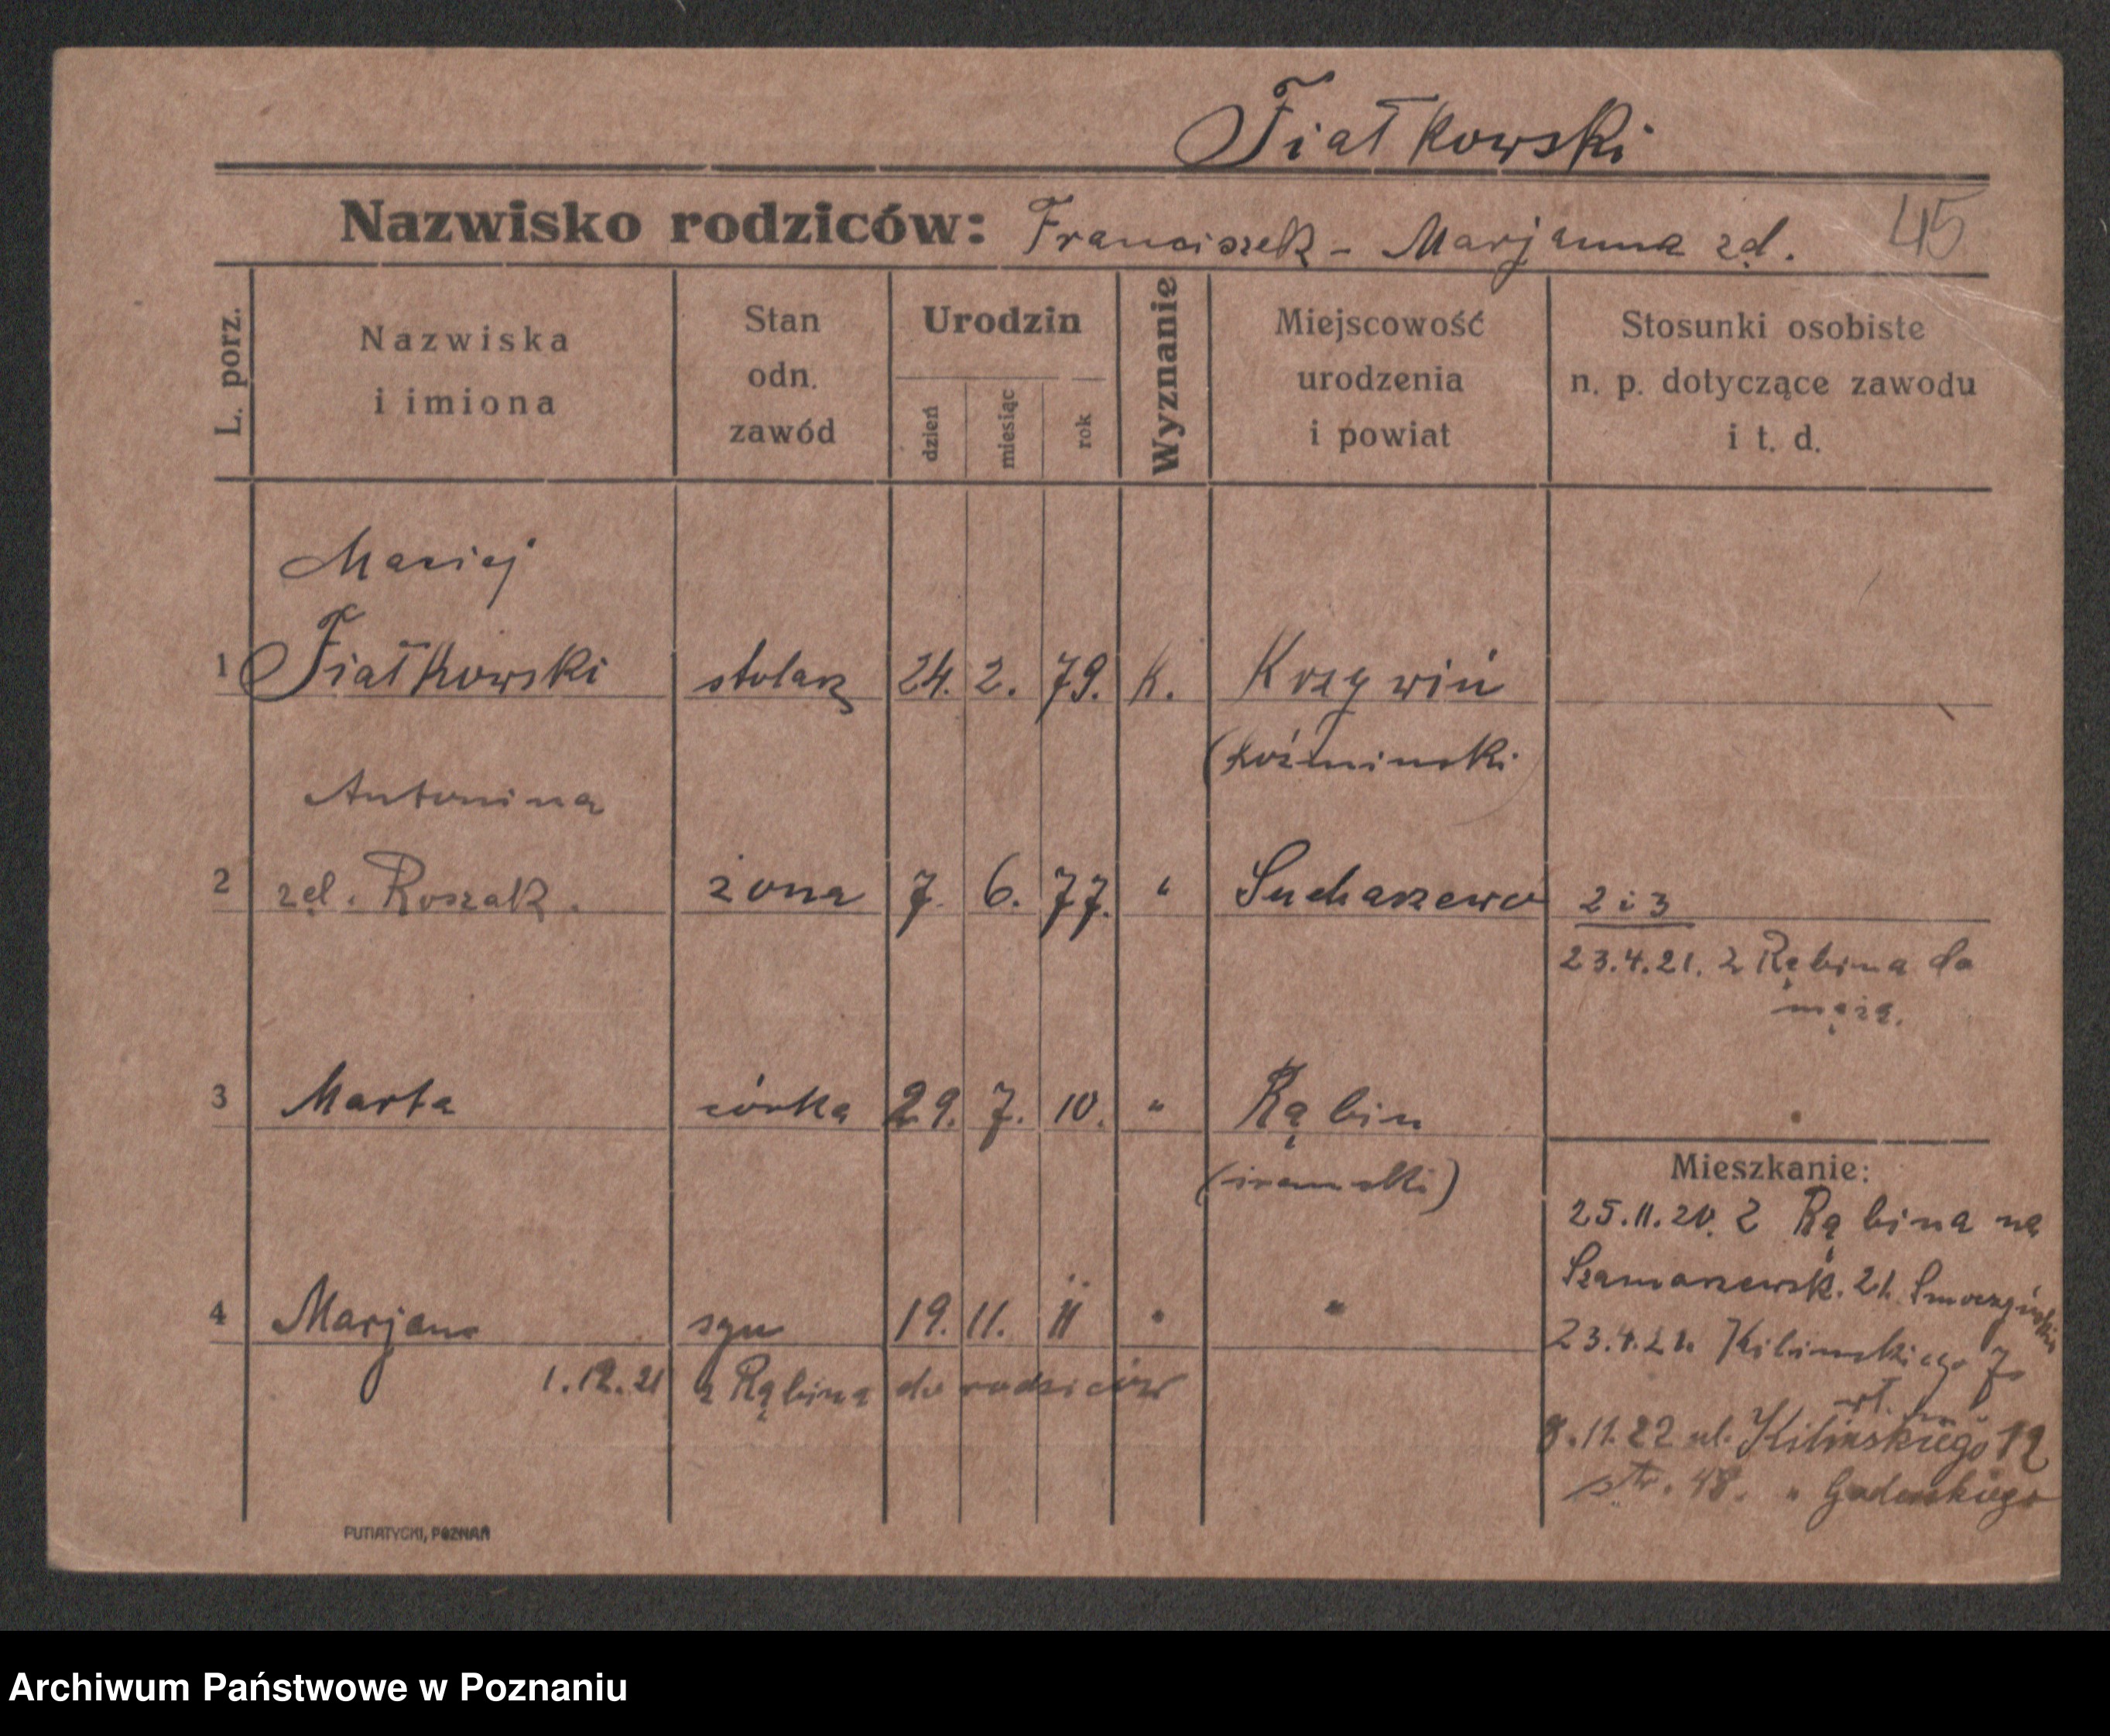 Fiałkowski
Nazwisko rodziców: Franciszek - Marjanna zd. 45
L. porz.
Nazwiska
i imiona
Stan
odn.
zawód
Urodzin
dzień
miesiąc
rok
Wyznanie
Miejscowość
urodzenia
i powiat
Stosunki osobiste
n. p. dotyczące zawodu
i t. d.
Maciej
1 Fiałkowski stolarz 24. 2. 79. k. Krzywiń
(koźmiński
Antonina
2 zd. Roszak. żona 7. 6. 77. " Sucharzewo 2 i 3
23.4.21. z Rąbina do
męża.
3 Marta córka 29. 7. 10. " Rąbin
(śremski)
Mieszkanie:
25.11.20. z Rąbina na
Szamarzewsk. 21.
4 Marjan syn 19. 11. 11 " "
23.4.21. Kilińskiego 7
1.12.21 z Rąbina do rodziców
8.11.22 ul. Kilińskiego 12
str. 48. "
PUTIATYCKI, POZNAŃ
Archiwum Państwowe w Poznaniu